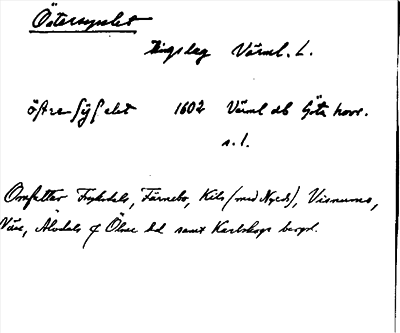 Östersysslet
tingslag Värml. L.
östre sÿsslet 1602 Värml. ob Göta hovr.
s. 1.
Omfattar Fryksdals, Färnebo, Kils (med Nyeds), Visnums,
Väse, Älvdals & Ölme hd samt Karlskoga bergsl.